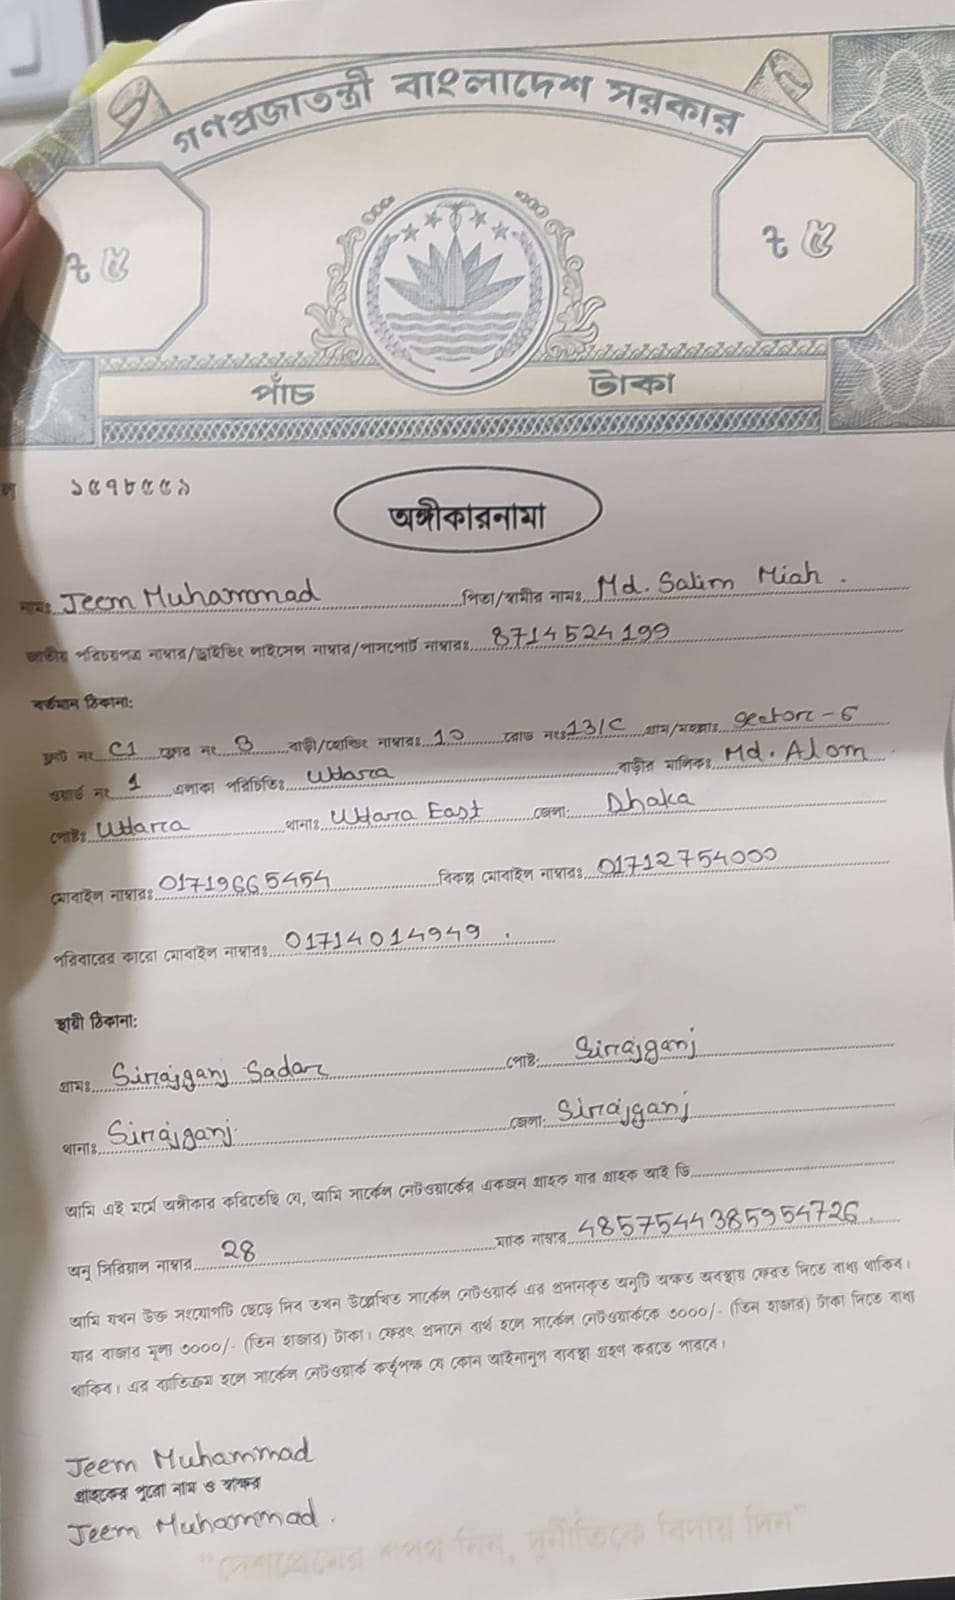 গণপ্রজাতন্ত্রী বাংলাদেশ সরকার
৳ ৫ ৳ ৫
পাঁচ টাকা
১৫৭৮৫৫৯
অঙ্গীকারনামা
নামঃ Jeem Muhammad পিতা/স্বামীর নামঃ Md. Salim Miah.
জাতীয় পরিচয়পত্র নাম্বার/ড্রাইভিং লাইসেন্স নাম্বার/পাসপোর্ট নাম্বারঃ 8714524199
বর্তমান ঠিকানা:
ফ্ল্যাট নং C1 ফ্লোর নং 3 বাড়ী/হোল্ডিং নাম্বারঃ 10 রোড নংঃ 13/C গ্রাম/মহল্লাঃ Sector - 6
ওয়ার্ড নং 1 এলাকা পরিচিতিঃ Uttara বাড়ীর মালিকঃ Md. Alom
পোষ্টঃ Uttara থানাঃ Uttara East জেলা: Dhaka
মোবাইল নাম্বারঃ 01719665454 বিকল্প মোবাইল নাম্বারঃ 01712754000
পরিবারের কারো মোবাইল নাম্বারঃ 01714014949.
স্থায়ী ঠিকানা:
গ্রামঃ Sirajganj Sadar পোষ্ট: Sirajganj
থানাঃ Sirajganj. জেলা: Sirajganj
আমি এই মর্মে অঙ্গীকার করিতেছি যে, আমি সার্কেল নেটওয়ার্কের একজন গ্রাহক যার গ্রাহক আই ডি
অনু সিরিয়াল নাম্বার 28 ম্যাক নাম্বার 4857544385954726.
আমি যখন উক্ত সংযোগটি ছেড়ে দিব তখন উল্লেখিত সার্কেল নেটওয়ার্ক এর প্রদানকৃত অনুটি অক্ষত অবস্থায় ফেরত দিতে বাধ্য থাকিব।
যার বাজার মূল্য ৩০০০/- (তিন হাজার) টাকা। ফেরৎ প্রদানে ব্যর্থ হলে সার্কেল নেটওয়ার্ককে ৩০০০/- (তিন হাজার) টাকা দিতে বাধ্য
থাকিব। এর ব্যতিক্রম হলে সার্কেল নেটওয়ার্ক কর্তৃপক্ষ যে কোন আইনানুগ ব্যবস্থা গ্রহণ করতে পারবে।
Jeem Muhammad
গ্রাহকের পুরো নাম ও স্বাক্ষর
Jeem Muhammad.
"দেশপ্রেমের শপথ নিন, দুর্নীতিকে বিদায় দিন"